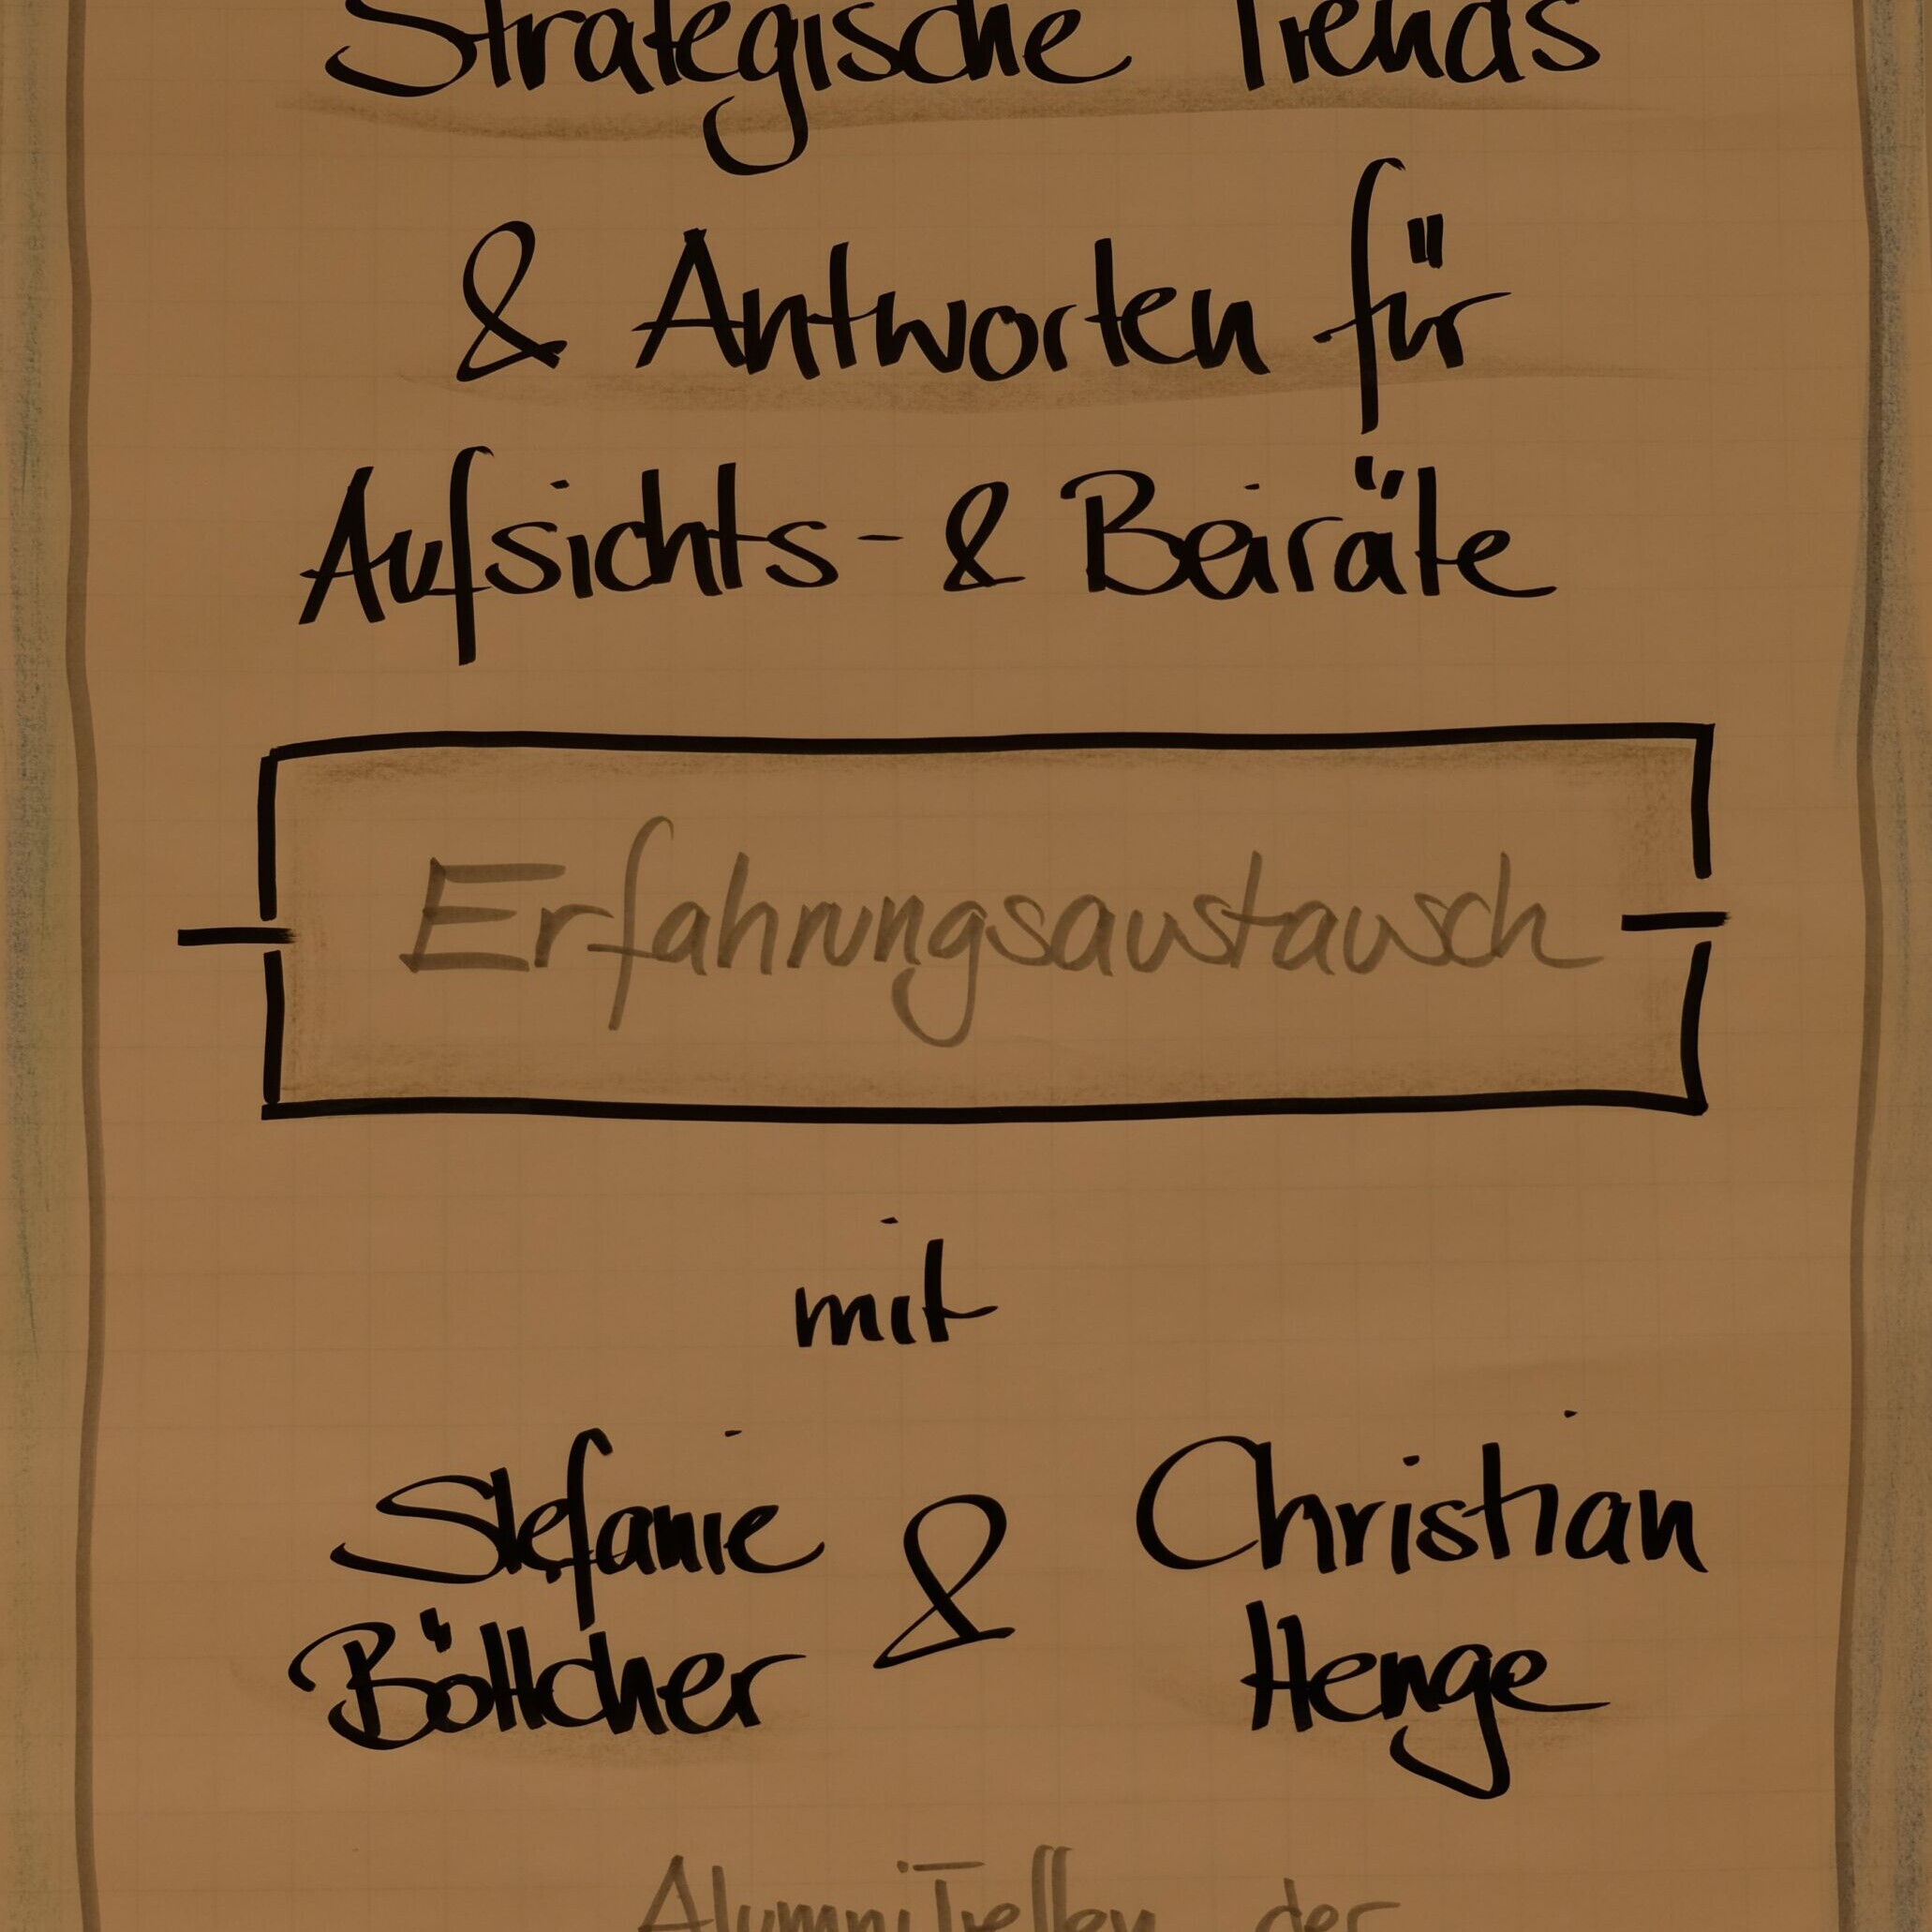 Strategische Trends
& Antworten für
Aufsichts- & Beiräte
Erfahrungsaustausch
mit
Stefanie & Christian
Böttcher Henge
AlumniTreffen der